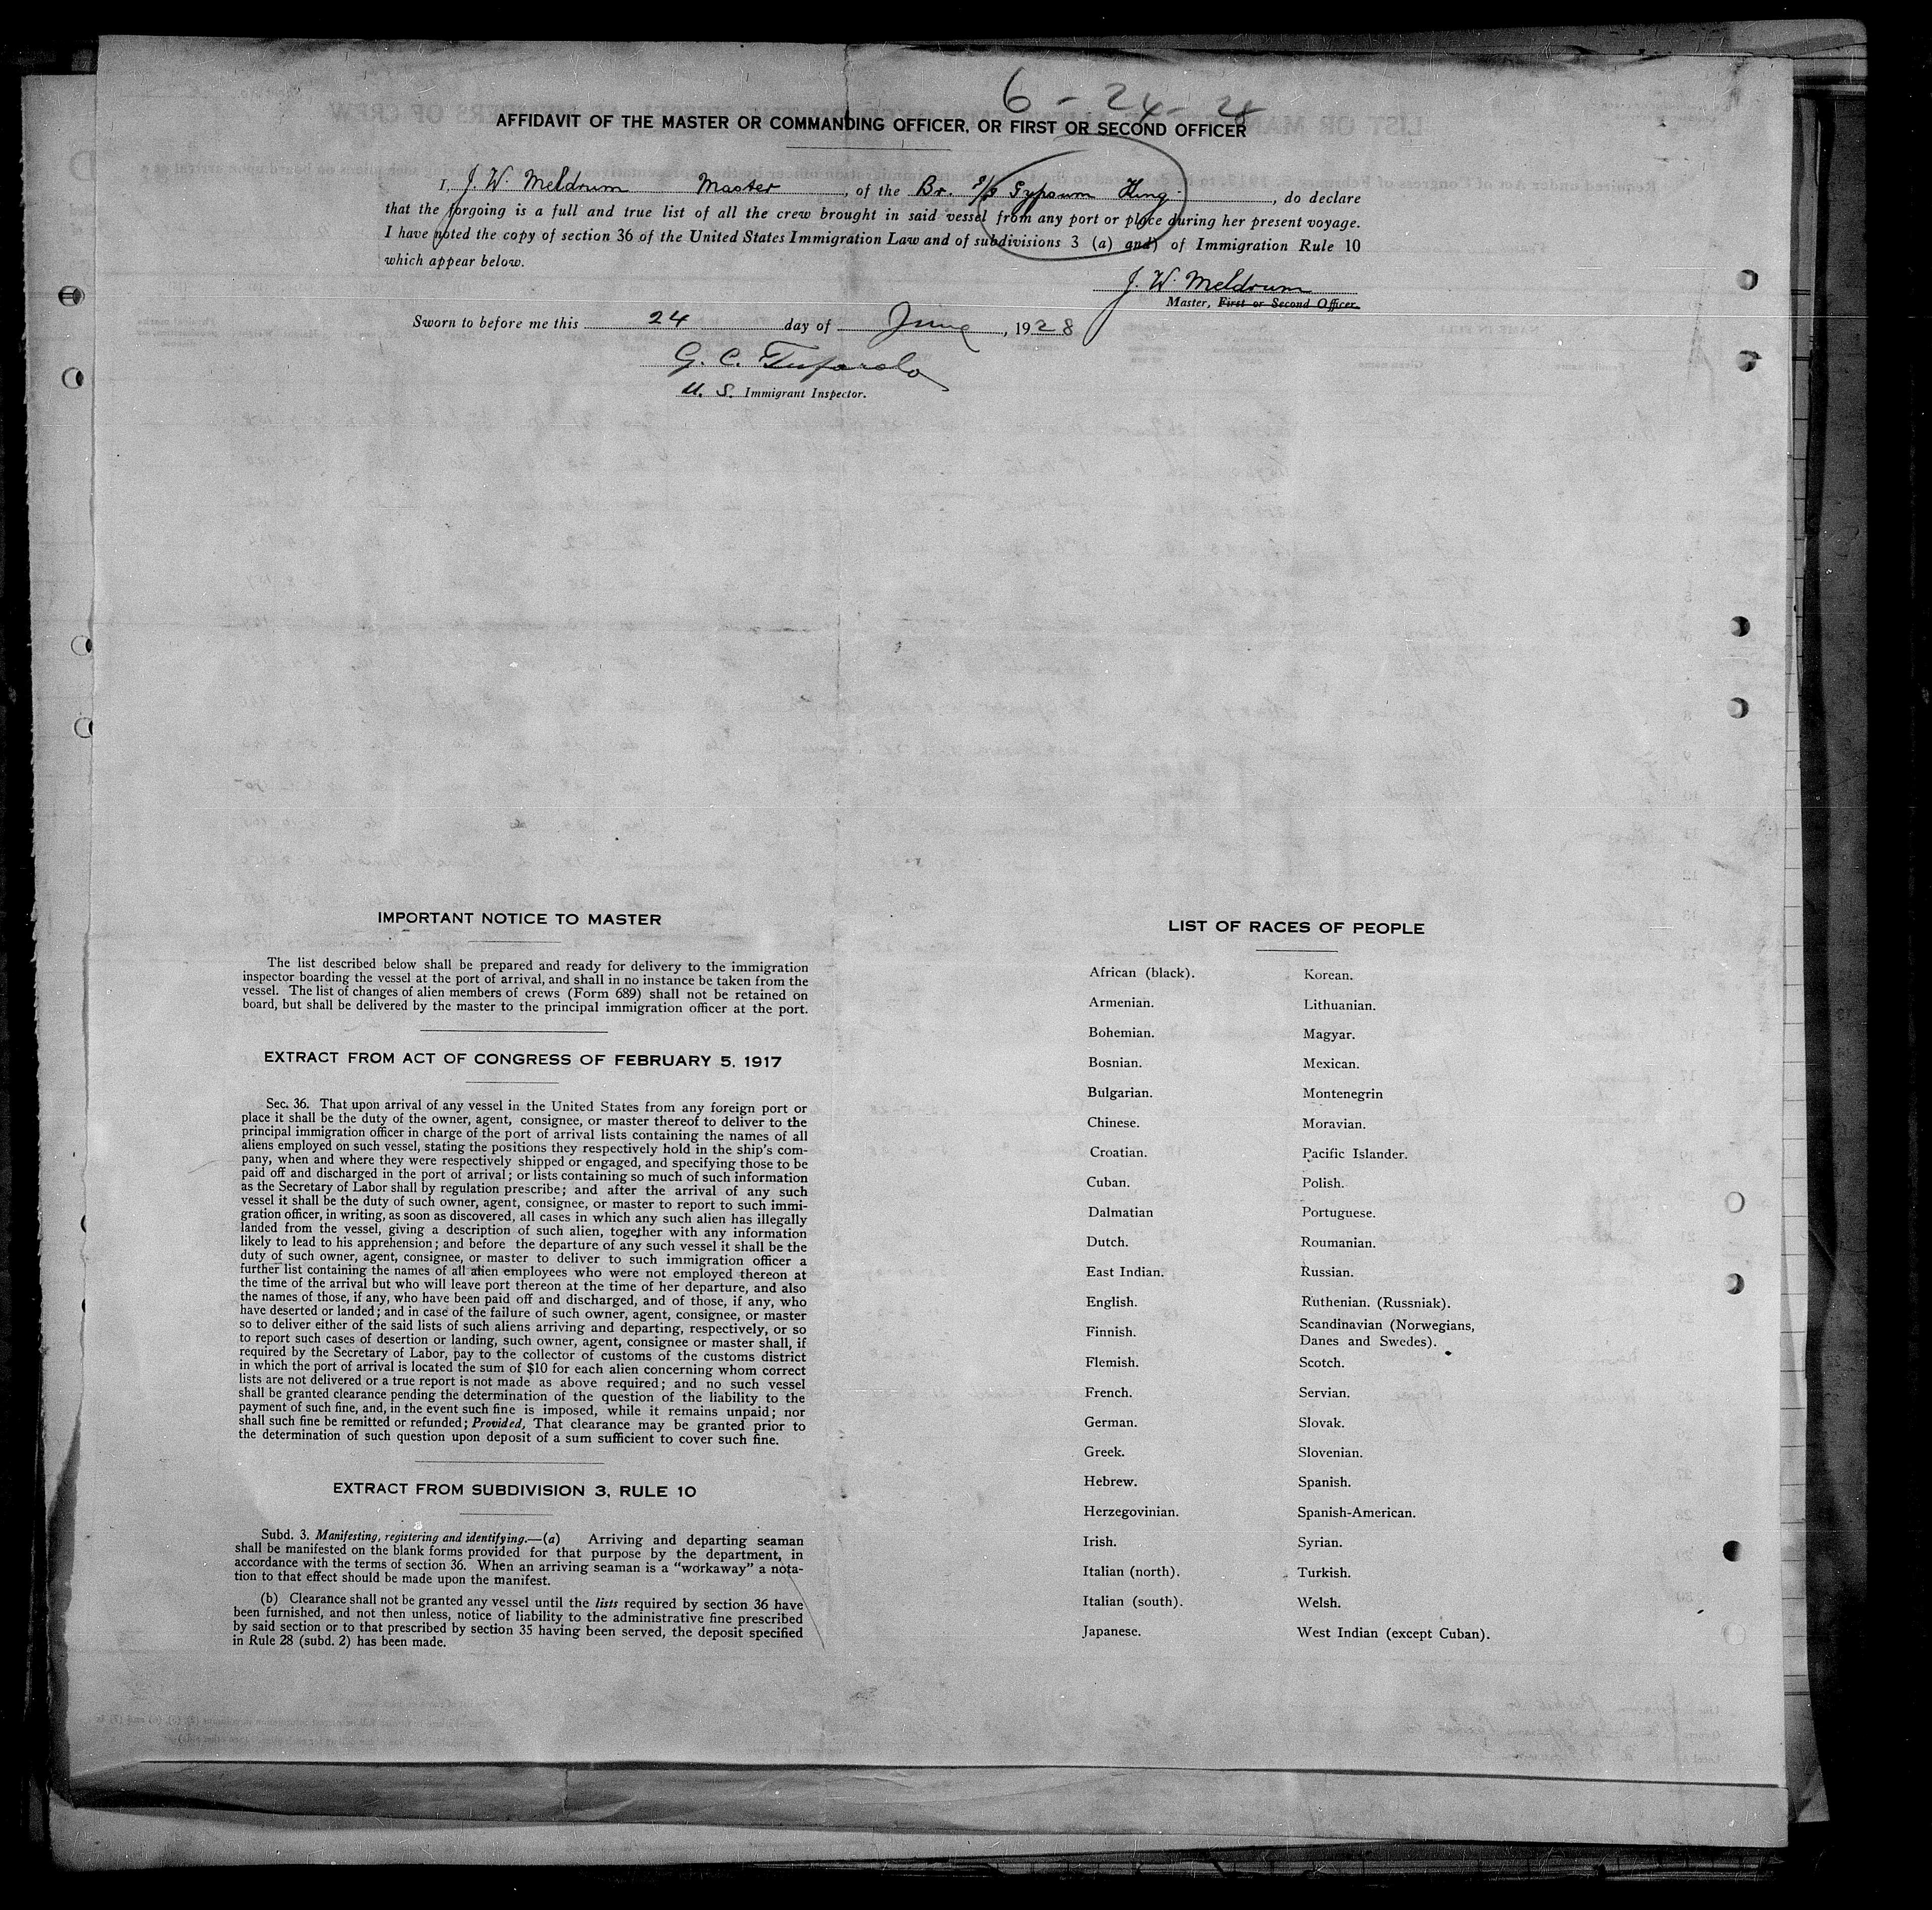 6-24-28
AFFIDAVIT OF THE MASTER OR COMMANDING OFFICER, OR FIRST OR SECOND OFFICER
I, J. W. Meldrum Master, of the Br. S/S Gypsum King, do declare
that the forgoing is a full and true list of all the crew brought in said vessel from any port or place during her present voyage.
I have noted the copy of section 36 of the United States Immigration Law and of subdivisions 3 (a) and) of Immigration Rule 10
which appear below.
J. W. Meldrum
Master, First or Second Officer.
Sworn to before me this 24 day of June, 1928
G. C.
U. S. Immigrant Inspector.
IMPORTANT NOTICE TO MASTER
The list described below shall be prepared and ready for delivery to the immigration
inspector boarding the vessel at the port of arrival, and shall in no instance be taken from the
vessel. The list of changes of alien members of crews (Form 689) shall not be retained on
board, but shall be delivered by the master to the principal immigration officer at the port.
EXTRACT FROM ACT OF CONGRESS OF FEBRUARY 5, 1917
Sec. 36. That upon arrival of any vessel in the United States from any foreign port or
place it shall be the duty of the owner, agent, consignee, or master thereof to deliver to the
principal immigration officer in charge of the port of arrival lists containing the names of all
aliens employed on such vessel, stating the positions they respectively hold in the ship's com-
pany, when and where they were respectively shipped or engaged, and specifying those to be
paid off and discharged in the port of arrival; or lists containing so much of such information
as the Secretary of Labor shall by regulation prescribe; and after the arrival of any such
vessel it shall be the duty of such owner, agent, consignee, or master to report to such immi-
gration officer, in writing, as soon as discovered, all cases in which any such alien has illegally
landed from the vessel, giving a description of such alien, together with any information
likely to lead to his apprehension; and before the departure of any such vessel it shall be the
duty of such owner, agent, consignee, or master to deliver to such immigration officer a
further list containing the names of all alien employees who were not employed thereon at
the time of the arrival but who will leave port thereon at the time of her departure, and also
the names of those, if any, who have been paid off and discharged, and of those, if any, who
have deserted or landed; and in case of the failure of such owner, agent, consignee, or master
so to deliver either of the said lists of such aliens arriving and departing, respectively, or so
to report such cases of desertion or landing, such owner, agent, consignee or master shall, if
required by the Secretary of Labor, pay to the collector of customs of the customs district
in which the port of arrival is located the sum of $10 for each alien concerning whom correct
lists are not delivered or a true report is not made as above required; and no such vessel
shall be granted clearance pending the determination of the question of the liability to the
payment of such fine, and, in the event such fine is imposed, while it remains unpaid; nor
shall such fine be remitted or refunded; Provided, That clearance may be granted prior to
the determination of such question upon deposit of a sum sufficient to cover such fine.
EXTRACT FROM SUBDIVISION 3, RULE 10
Subd. 3. Manifesting, registering and identifying.—(a) Arriving and departing seaman
shall be manifested on the blank forms provided for that purpose by the department, in
accordance with the terms of section 36. When an arriving seaman is a "workaway" a nota-
tion to that effect should be made upon the manifest.
(b) Clearance shall not be granted any vessel until the lists required by section 36 have
been furnished, and not then unless, notice of liability to the administrative fine prescribed
by said section or to that prescribed by section 35 having been served, the deposit specified
in Rule 28 (subd. 2) has been made.
LIST OF RACES OF PEOPLE
African (black).
Armenian.
Bohemian.
Bosnian.
Bulgarian.
Chinese.
Croatian.
Cuban.
Dalmatian
Dutch.
East Indian.
English.
Finnish.
Flemish.
French.
German.
Greek.
Hebrew.
Herzegovinian.
Irish.
Italian (north).
Italian (south).
Japanese.
Korean.
Lithuanian.
Magyar.
Mexican.
Montenegrin
Moravian.
Pacific Islander.
Polish.
Portuguese.
Roumanian.
Russian.
Ruthenian. (Russniak).
Scandinavian (Norwegians,
Danes and Swedes).
Scotch.
Servian.
Slovak.
Slovenian.
Spanish.
Spanish-American.
Syrian.
Turkish.
Welsh.
West Indian (except Cuban).